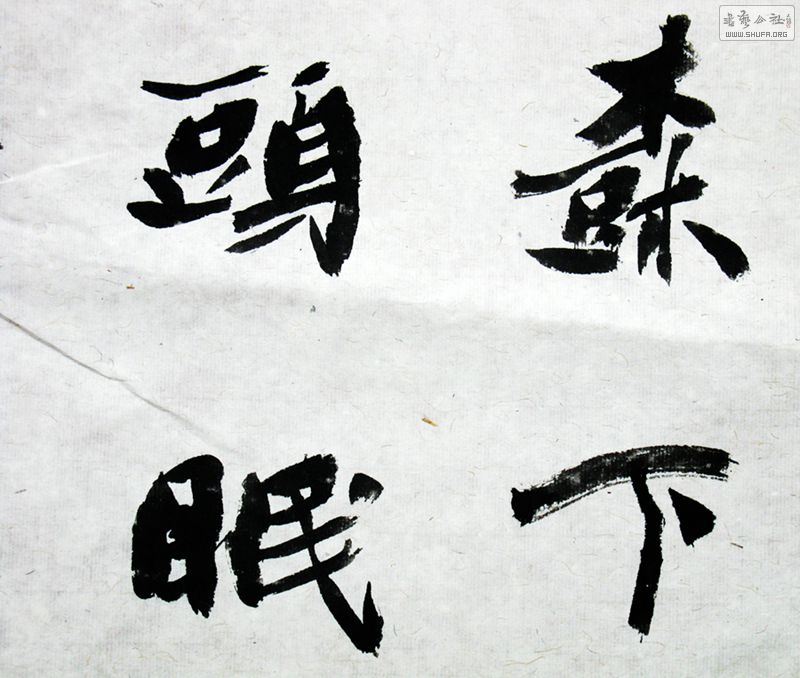 樹下
頭眠
書藝公社
WWW.SHUFA.ORG